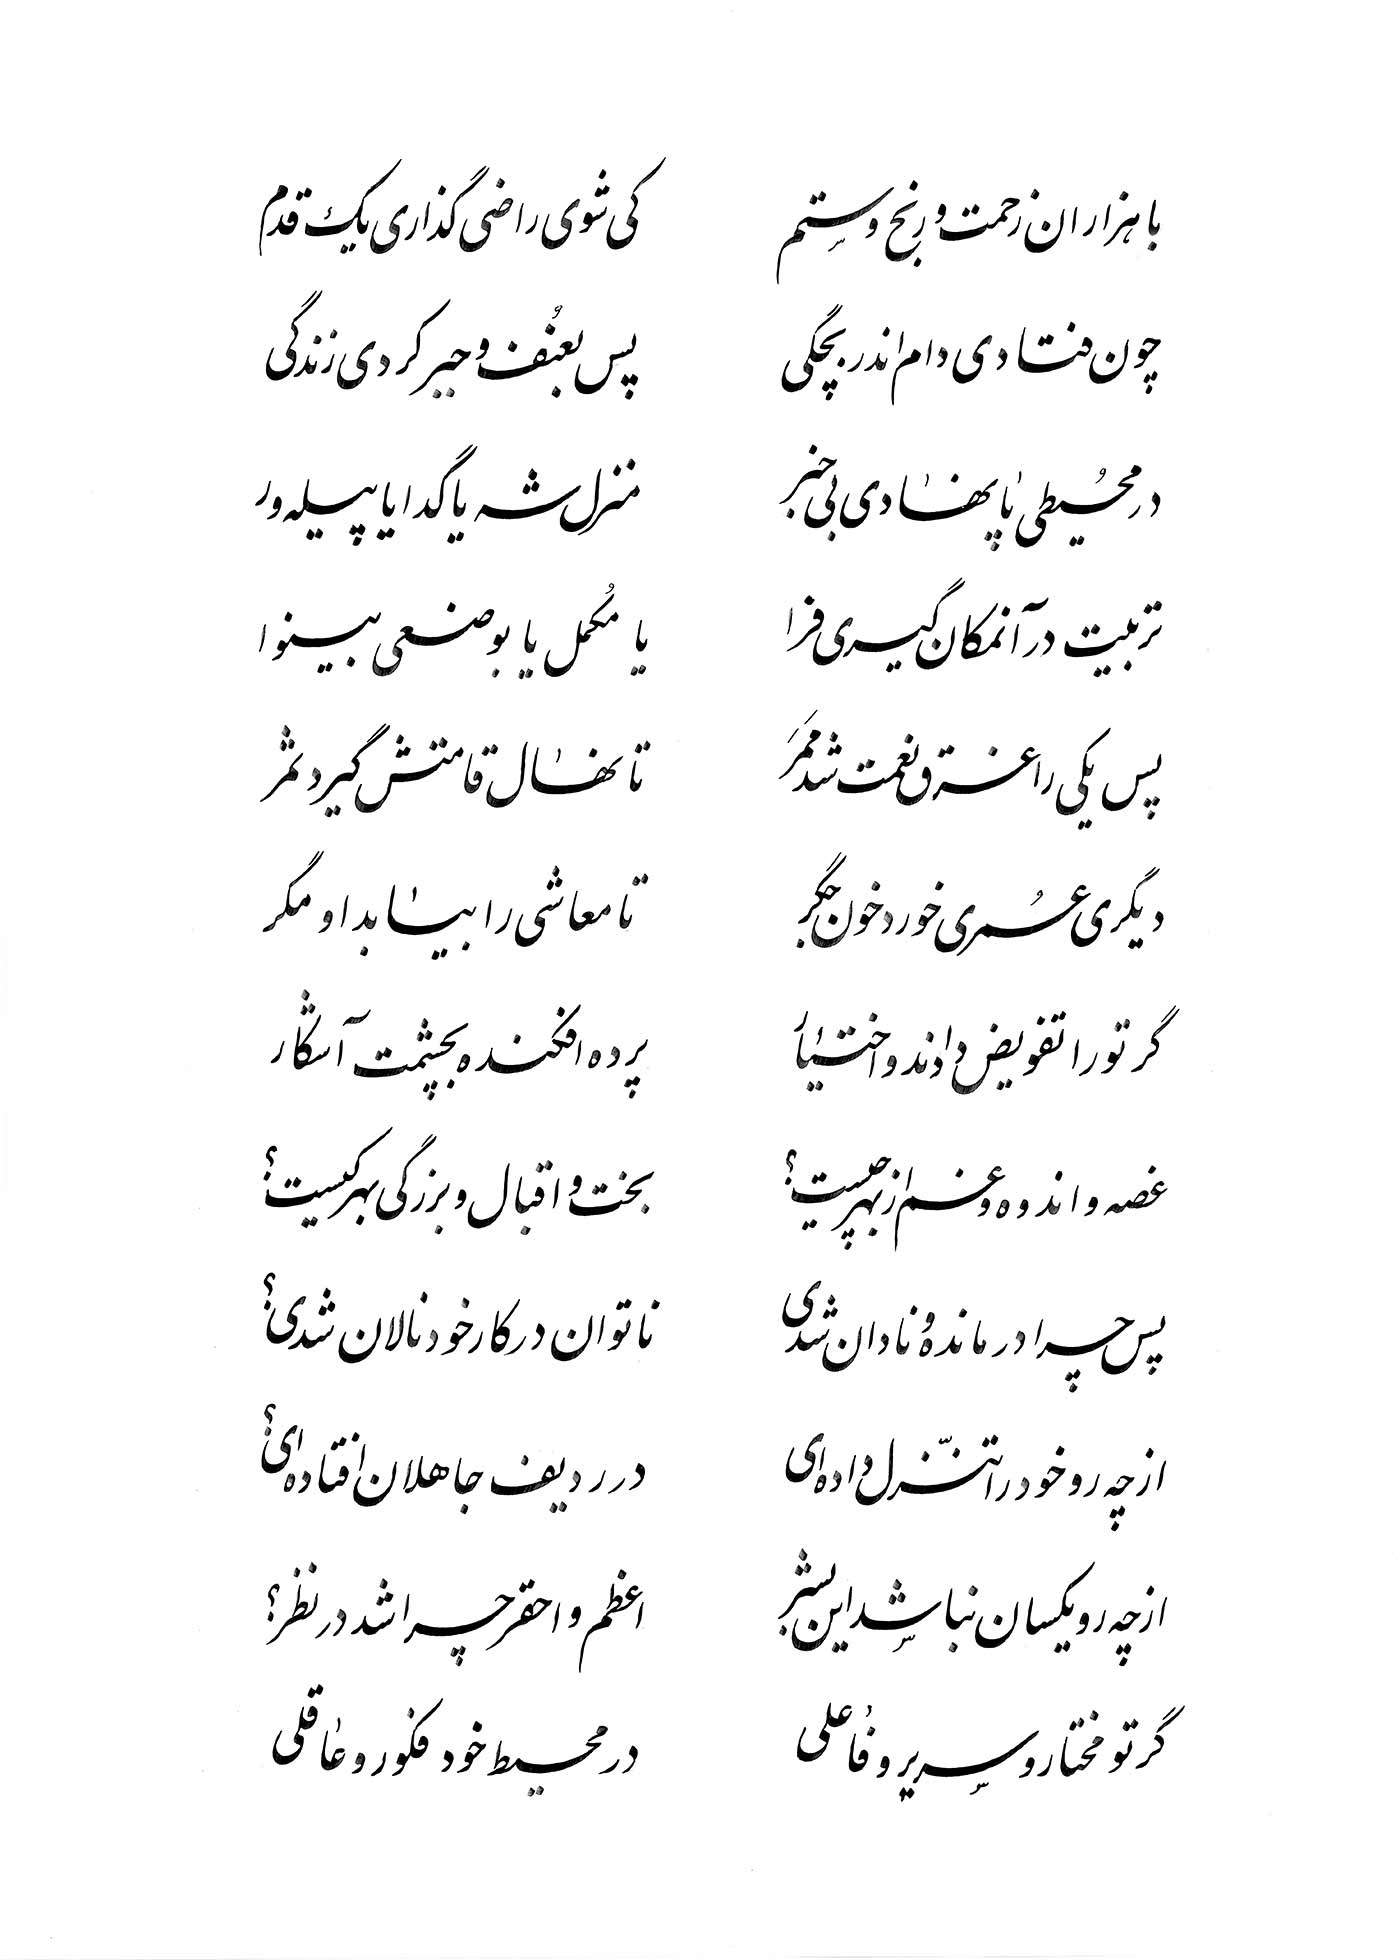 با هزاران زحمت و رنج و ستم کی شوی راضی گذاری یک قدم
چون فتادی دام اندر بچگی پس بعُنف و جبر کردی زندگی
در مُحیطی پا نهادی بی خبر منزل شه یا گدا یا پیله ور
تربیت در آنمکان گیری فرا یا مُکمل یا بوضعی بینوا
پس یکی را غرق نعمت شد مَمَر تا نهال قامتش گیرد ثمر
دیگری عُمری خورد خون جگر تا معاشی را بیابد او مگر
گر تو را تفویض دادند و اختیار پرده افکنده بچشمت آشکار
غصه و اندوه و غم از بهر چیست؟ بخت و اقبال و بزرگی بهر کیست؟
پس چرا درمانده و نادان شدی ناتوان در کار خود نالان شدی؟
از چه رو خود را تنزّل داده ای در ردیف جاهلان افتاده ای؟
از چه رو یکسان نباشد این بشر اعظم و احقر چرا شد در نظر؟
گر تو مختار و سریر و فُاعلی در محیط خود فکور و عاقلی